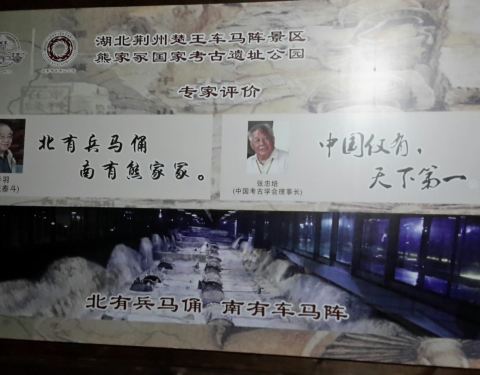 湖北荆州楚王车马阵景区
熊家冢国家考古遗址公园
专家评价
北有兵马俑
南有熊家冢。
中国仅有、
天下第一
羽
泰斗)
张忠培
(中国考古学会理事长)
北有兵马俑 南有车马阵